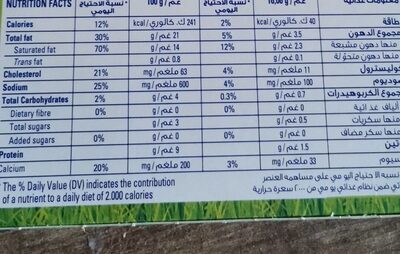 NUTRITION FACTS نسبة الاحتياج اليومي 100 غم / g نسبة الاحتياج اليومي
Calories 12% 241 ك. كالوري / kcal 2% 40 ك. كالوري / kcal طاقة
Total fat 30% 21 غم / g 5% 3.5 غم / g مجموع الدهون
Saturated fat 70% 14 غم / g 12% 2.3 غم / g منها دهون مشبعة
Trans fat 0.8 غم / g 0.1 غم / g منها دهون متحولة
Cholesterol 21% 63 ملغم / mg 4% 11 ملغم / mg
Sodium 25% 600 ملغم / mg 4% 100 ملغم / mg
Total Carbohydrates 2% 4 غم / g 0.3% 0.7 غم / g مجموع الكربوهيدرات
Dietary fibre 0% 0 غم / g 0% 0 غم / g ألياف غذائية
Total sugars 3 غم / g 0 غم / g منها سكريات
Added sugars 0% 0 غم / g 0% 0 غم / g منها سكر مضاف
Protein 9 غم / g 1.5 غم / g
Calcium 20% 200 ملغم / mg 3% 33 ملغم / mg
* The % Daily Value (DV) indicates the contribution
of a nutrient to a daily diet of 2.000 calories
نسبه الاحتياج اليومي على مساهمه العنصر
في ضمن نظام غذائي يومي من ٢٠٠٠ سعرة حرارية